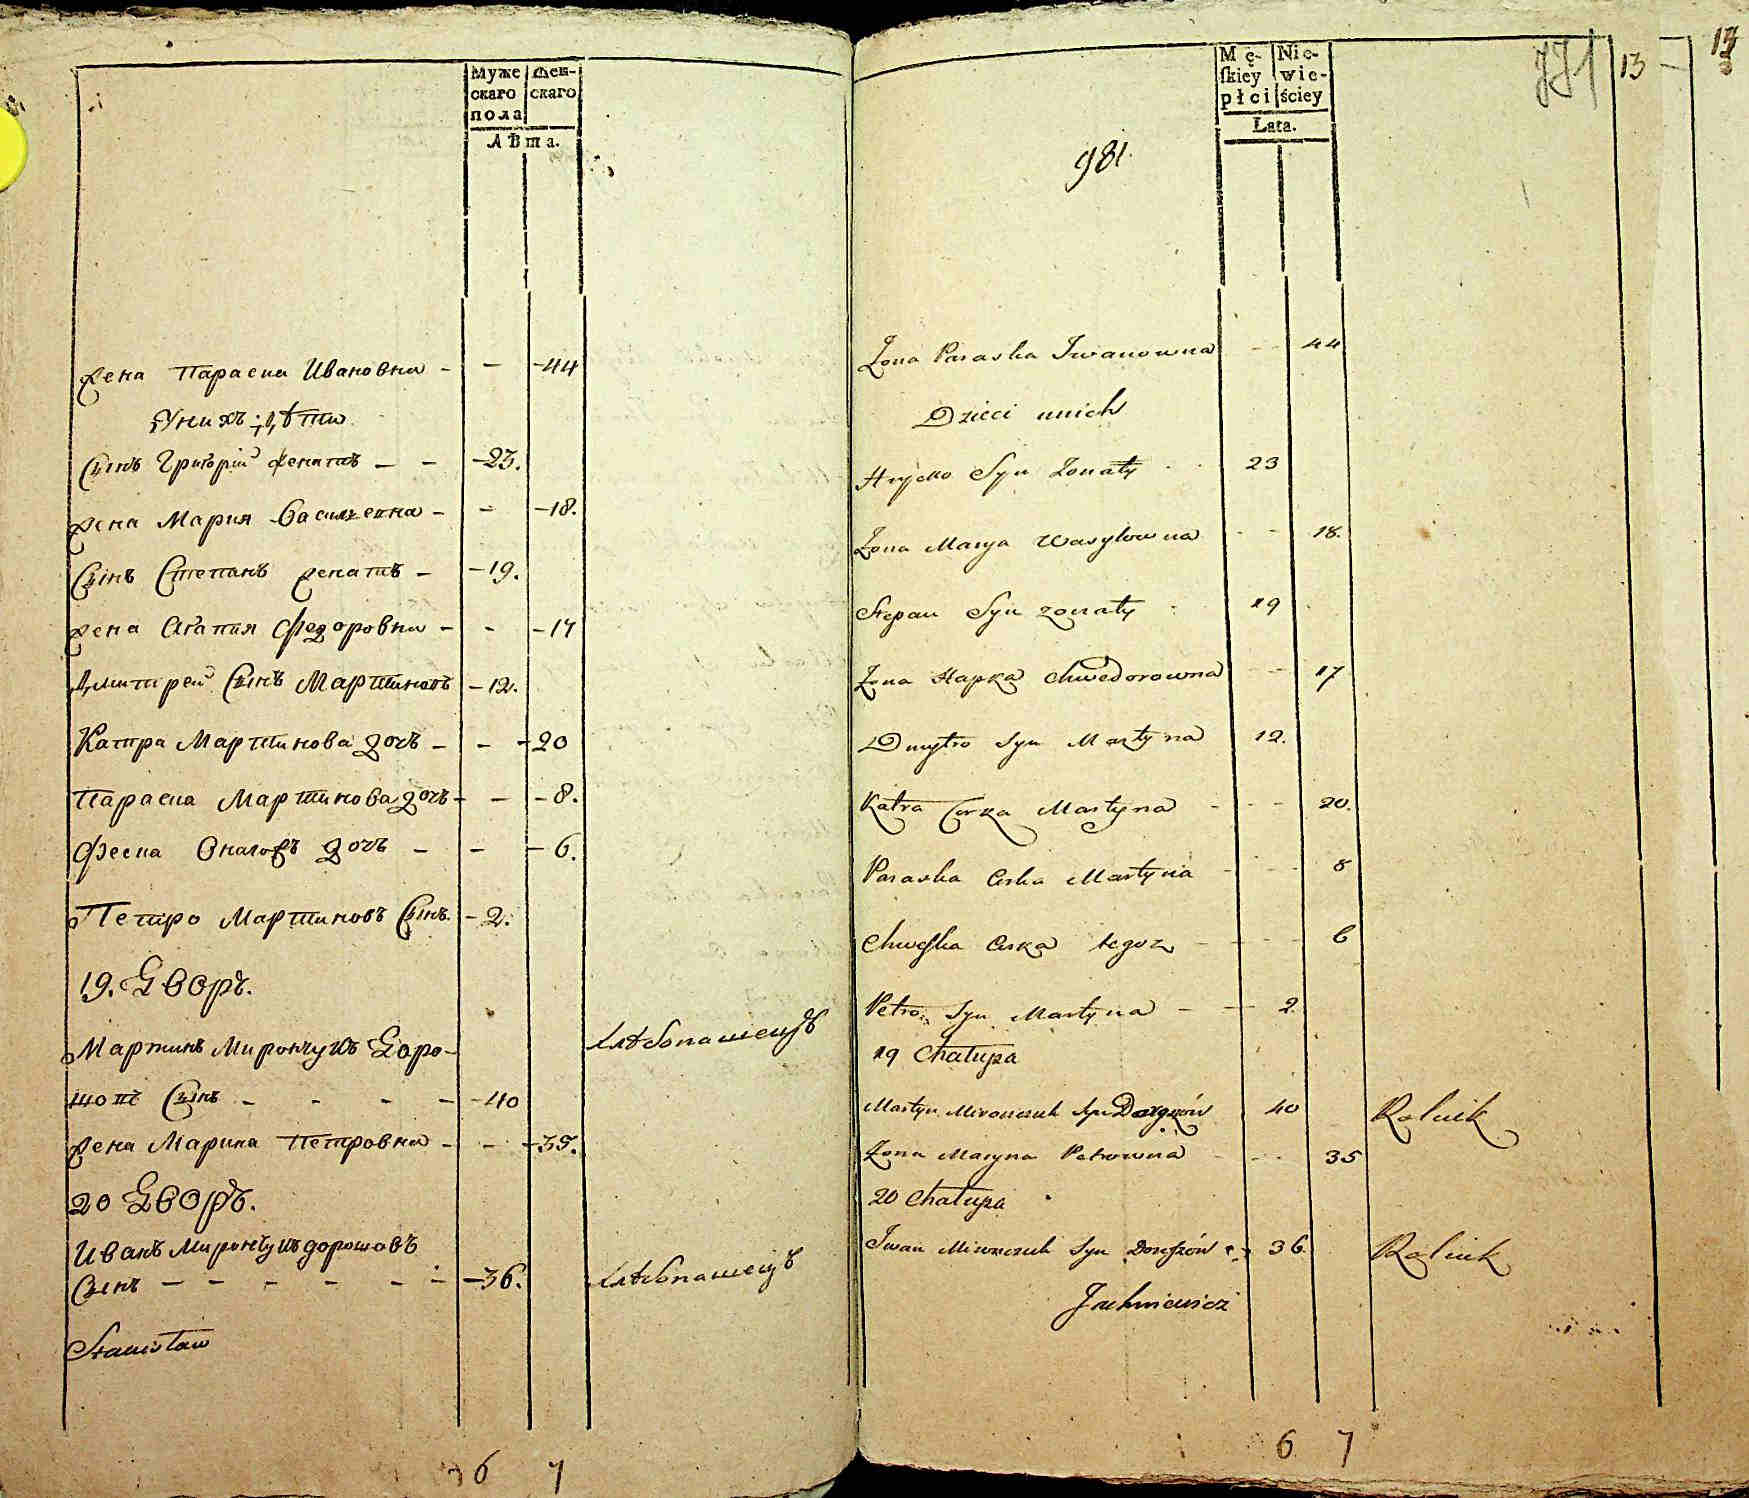 Муже Жен-
скаго скаго
пола
Лѣта.
жена Параска Ивановна - - -44
У нихъ дѣти
Сынъ Григорій женатъ - - -23.
жена Мария Васильевна - - -18.
Сынъ Степанъ женатъ - -19.
жена Агапия Федоровна - - -17
Дмитрей Сынъ Мартиновъ -12.
Катра Мартинова дочь - - -20
Параска Мартинова дочь - - -8.
Феска дочь - - -6.
Петро Мартиновъ Сынъ. -2.
19. Дворъ.
Мартинъ Мирончукъ Доро-
Сынъ - - - - -40 хлѣбопашецъ
жена Марина Петровна - - -35.
20 Дворъ.
Иванъ Мирончукъ дорошовъ
Сынъ - - - - - - -36. хлѣбопашецъ
Stanisław
6 7
Mę- Nie-
skiey wie-
płci ściey
Lata.
981.
13 -
13
Żona Paraska Iwanowna - - 44
Dzieci unich
Hryćko Syn Żonaty . . 23
Żona Marya Wasylowna - - 18.
Stepan Syn żonaty . 19
Żona Hapka Chwedorowna - - 17
Dmytro Syn Martyna 12.
Katra Corka Martyna - - - 20.
Paraska Corka Martyna - - - 8
Chweska Corka tegoż - - - 6
Petro Syn Martyna - - 2
19 Chałupa
Martyn Mironczuk Syn 40 Rolnik
Żona Maryna Petrowna - - - 35
20 Chałupa
Iwan Mironczuk Syn Doroszów 36 Rolnik
Juchniewicz
6 7